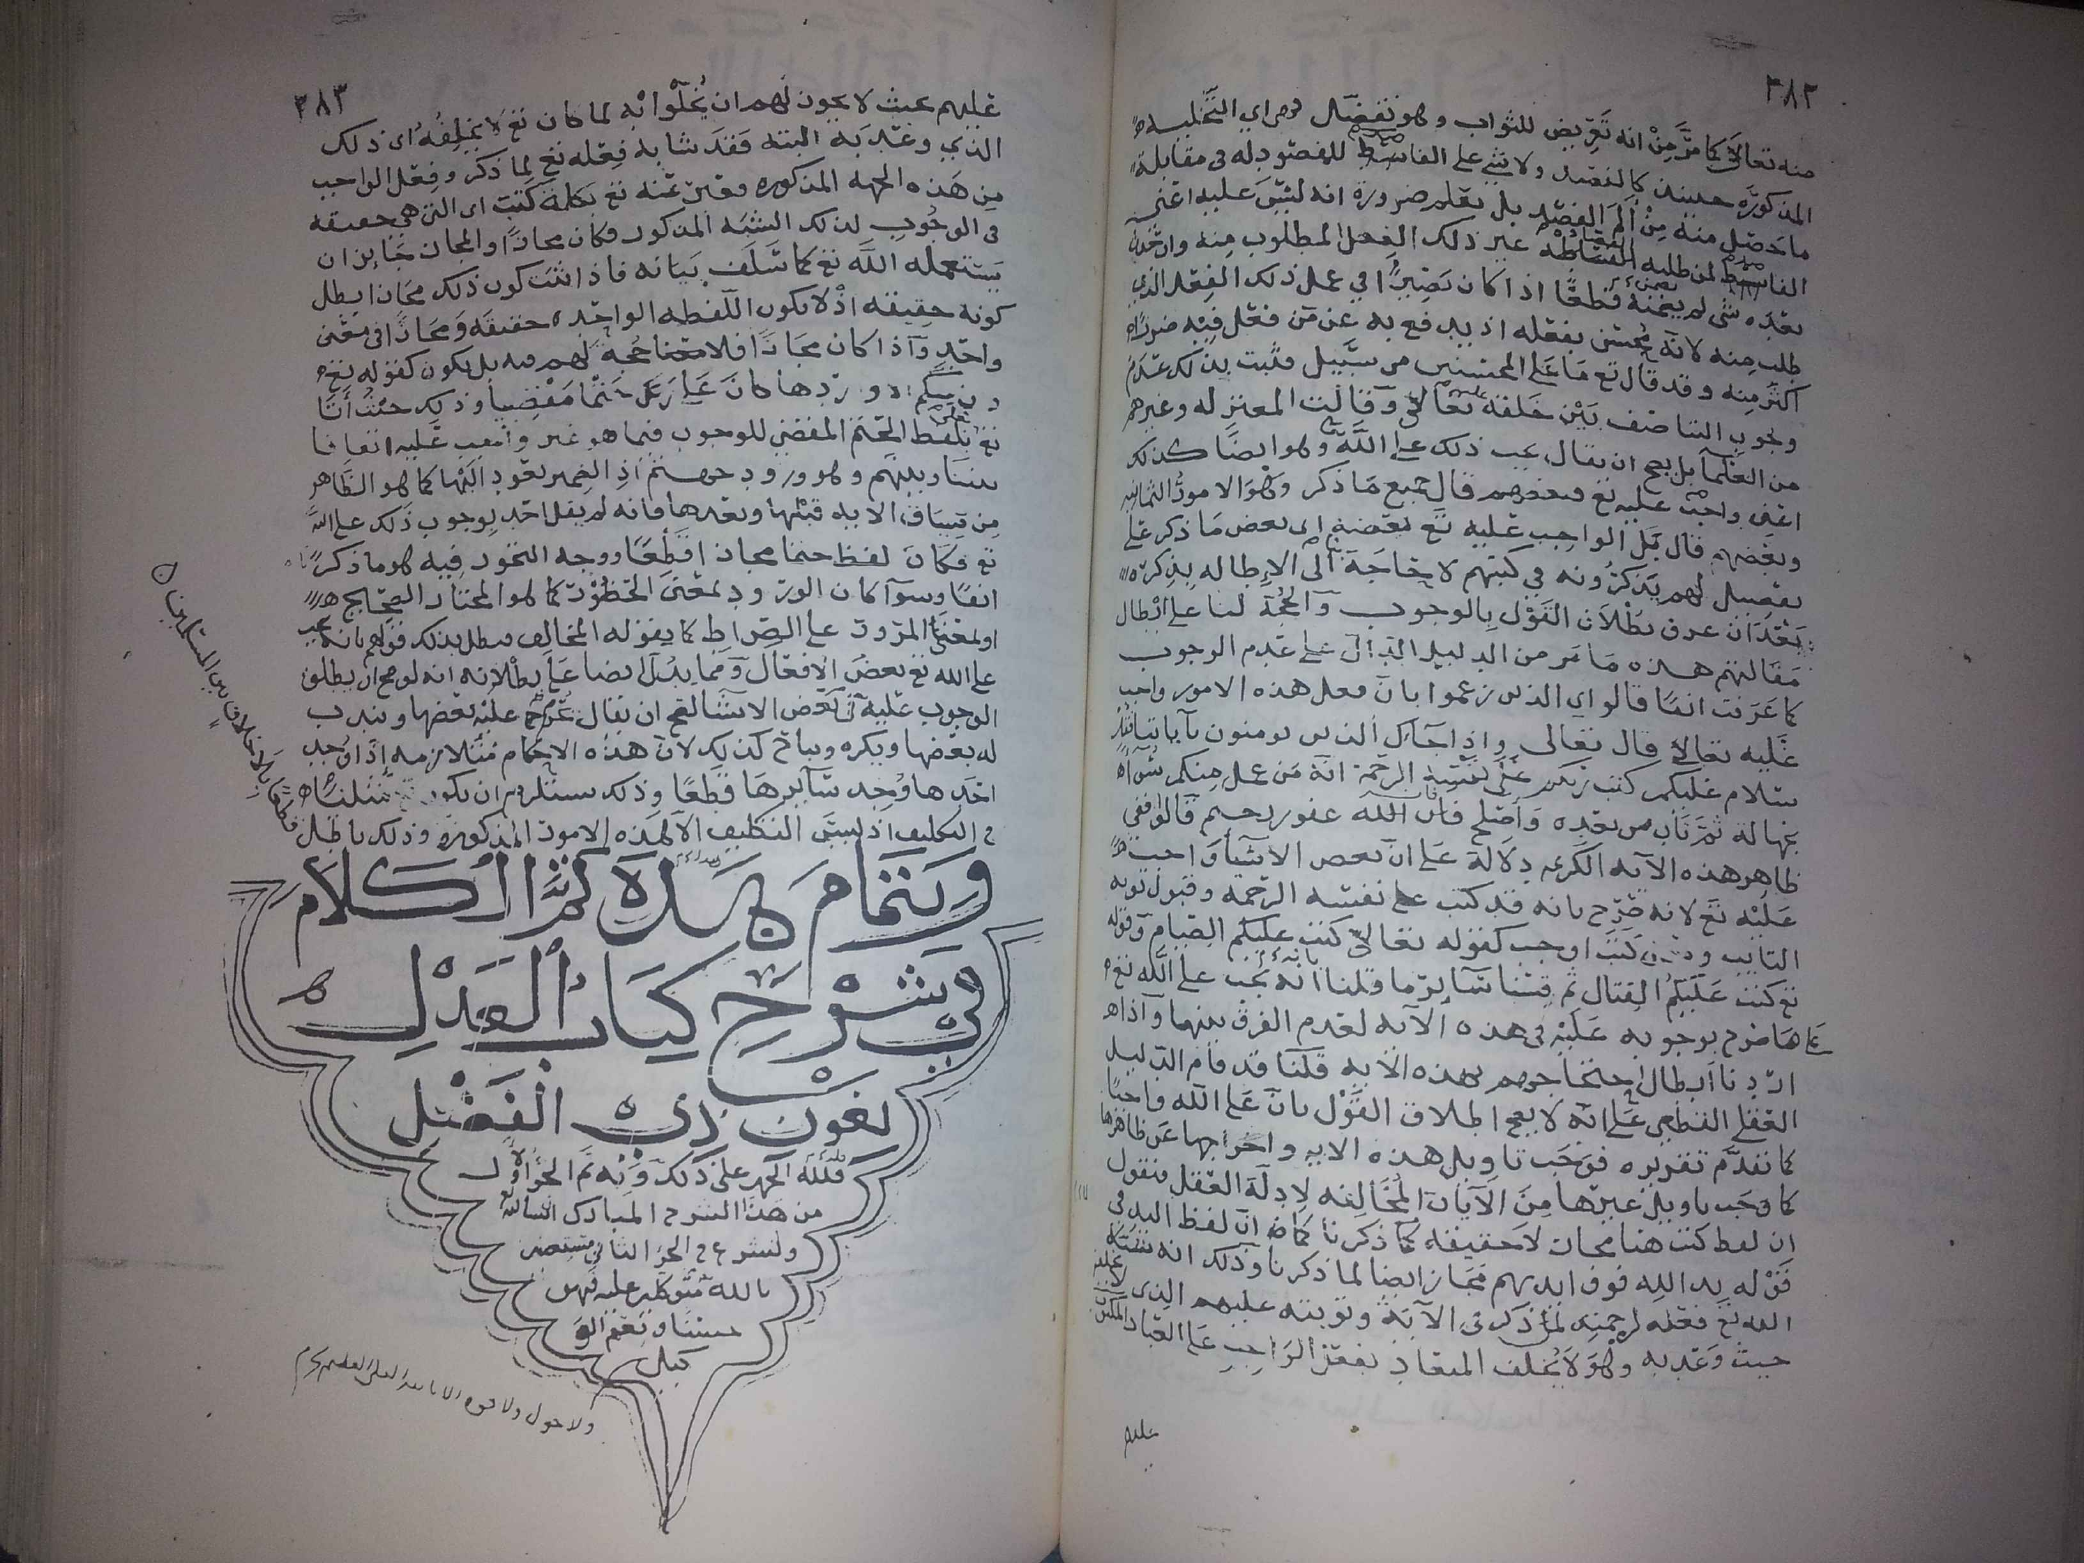 ٣٨٢
منه تعالى كما مر من انه تعريض للثواب وهو تفضل فهو اي التخليه
المذكوره حينئذ كالفصد ولا شي على الفاصد للمفصود له في مقابلة
ما حصل منه من الم الفصد بل يعلم ضرورة انه ليس عليه اعني
الفاصد لمن طلبه الفصادة غير ذلك الفعل المطلوب منه وان حدث
بعده شي لم يضمنه قطعًا اذا كان بصيرًا في عمل ذلك الفعل الذي
طلب منه لانه محسن بفعله اذ يدفع به عن من فعل فيه ضررًا
اكثر منه وقد قال تع ما على المحسنين من سبيل فثبت بذلك عدم
وجوب التناصف بين خلقه عليه تعالى وقالت المعتزله وغيرهم
من العلمآ بل يصح ان يقال يجب ذلك على الله وهو ايضًا كذلك
اعني واجب عليه تع فبعضهم قال جميع ما ذكر وهو الامور الثمانيه
وبعضهم قال بل الواجب عليه تع بعضه اي بعض ما ذكر على
تفصيل لهم يذكرونه في كتبهم لا حاجة الى الإطاله بذكره
بعد ان عرف بطلان القول بالوجوب والحجة لنا على ابطال
مقالتهم هذه ما مر من الدليل الدال على عدم الوجوب
كما عرفت انفًا قالوا اي الذين زعموا بان فعل هذه الامور واجب
عليه تعالى قال تعالى واذا جآك الذين يومنون بآياتنا فقل
سلام عليكم كتب ربكم على نفسه الرحمة انه من عمل منكم سوآ
بجهالة ثم تاب من بعده واصلح فانه الله غفور رحيم قالوا ففي
ظاهر هذه الآيه الكريمه دلالة على ان بعض الاشيآ واجب
عليه تع لانه صرح بانه قد كتب على نفسه الرحمه وقبول توبه
التايب ومعنى كتب اوجب كقوله تعالى كتب عليكم الصيام وقوله
تع كتب عليكم القتال ثم قسنا سآير ما قلنا انه يجب على الله تع
على ما صرح بوجوبه عليه في هذه الآيه لعدم الفرق بينهما وآذا
اردنا ابطال احتجاجهم بهذه الايه قلنا قد قام الدليل
العقلي القطعي على انه لا يصح اطلاق القول بان على الله واجبًا
كما تقدم تقريره فوجب تاويل هذه الايه واخراجها عن ظاهرها
كما وجب تاويل غيرها من الآيات المخالفه لادلة العقل فنقول
ان لفظ كتب هنا مجاز لا حقيقه كما ذكرنا كما ان لفظ اليد في
قوله يد الله فوق ايديهم مجاز ايضا لما ذكرنا وذلك انه شبه
الله تع فعله لرحمته لمن ذكر في الآية وتوبته عليهم الذي
حيث وعد به وهو لا يخلف الميعاد بفعل الواجب على العباد المكتوب
عليهم
٣٨٣
عليهم بحيث لا يجوز لهم ان يُخلّوا به لما كان تع لا يخلفه اي ذلك
الذي وعد به البته فقد شابه فعله تع لما ذكر وفعل الواجب
من هذه الجهه المذكوره فعبر عنه تع بكلمة كتب اي التي هي حقيقه
في الوجوب لذلك الشبه المذكور فكان مجازًا والمجاز جايز ان
يستعمله الله تع كما سلف بيانه فاذا ثبت كون ذلك مجازا بطل
كونه حقيقه اذ لا يكون اللفظه الواحده حقيقه ومجازًا في معنى
واحد وآذا كان مجازًا فلا حجه لهم فيه بل يكون كقوله تع
وان منكم الا واردها كان على ربك حتما مقضيا وذلك حيث أتا
تع بلفظ الحتم المقضي للوجوب فيما هو غير واجب عليه اتفاقا
بيننا وبينهم وهو ورود جهنم اذ الضمير يعود اليها كما هو الظاهر
من سياق الايه قبلها وبعدها فانه لم يقل احد بوجوب ذلك على الله
تع فكان لفظ حتما مجازا قطعًا ووجه التجوز فيه هو ما ذكر
انفًا وسوآ كان الورود بمعنى الحضور كما هو المختار الصحيح
او بمعنى المرور على الصراط كما يقوله المخالف فبطل بذلك قولهم بانه يجب
على الله تع بعض الافعال ومما يدل ايضا على بطلانه انه لو صح ان يطلق
الوجوب عليه في بعض الاشيآ لصح ان يقال يحرم عليه بعضها ويندب
له بعضها ويكره ويباح كذلك لان هذه الاحكام متلازمه اذا وجد
احدها وجد سآيرها قطعًا وذلك يستلزم ان يكون تع مثلنا
في التكليف اذ ليس التكليف الا لهذه الامور المذكوره وذلك باطل
قطعًا بلا خلاف بين المسلمين
وبتمام هذه كمل الكلام
في شرح كتاب العدل
بعون ذي الفضل
فلله الحمد على ذلك وبه تم الجزؤ الاول
من هذا الشرح المبارك انشا الله
ولنشرع في الجزؤ الثاني مستعينين
بالله متوكلين عليه فهو
حسبنا ونعم الو
كيل
ولا حول ولا قوه الا بالله العلي العظيم